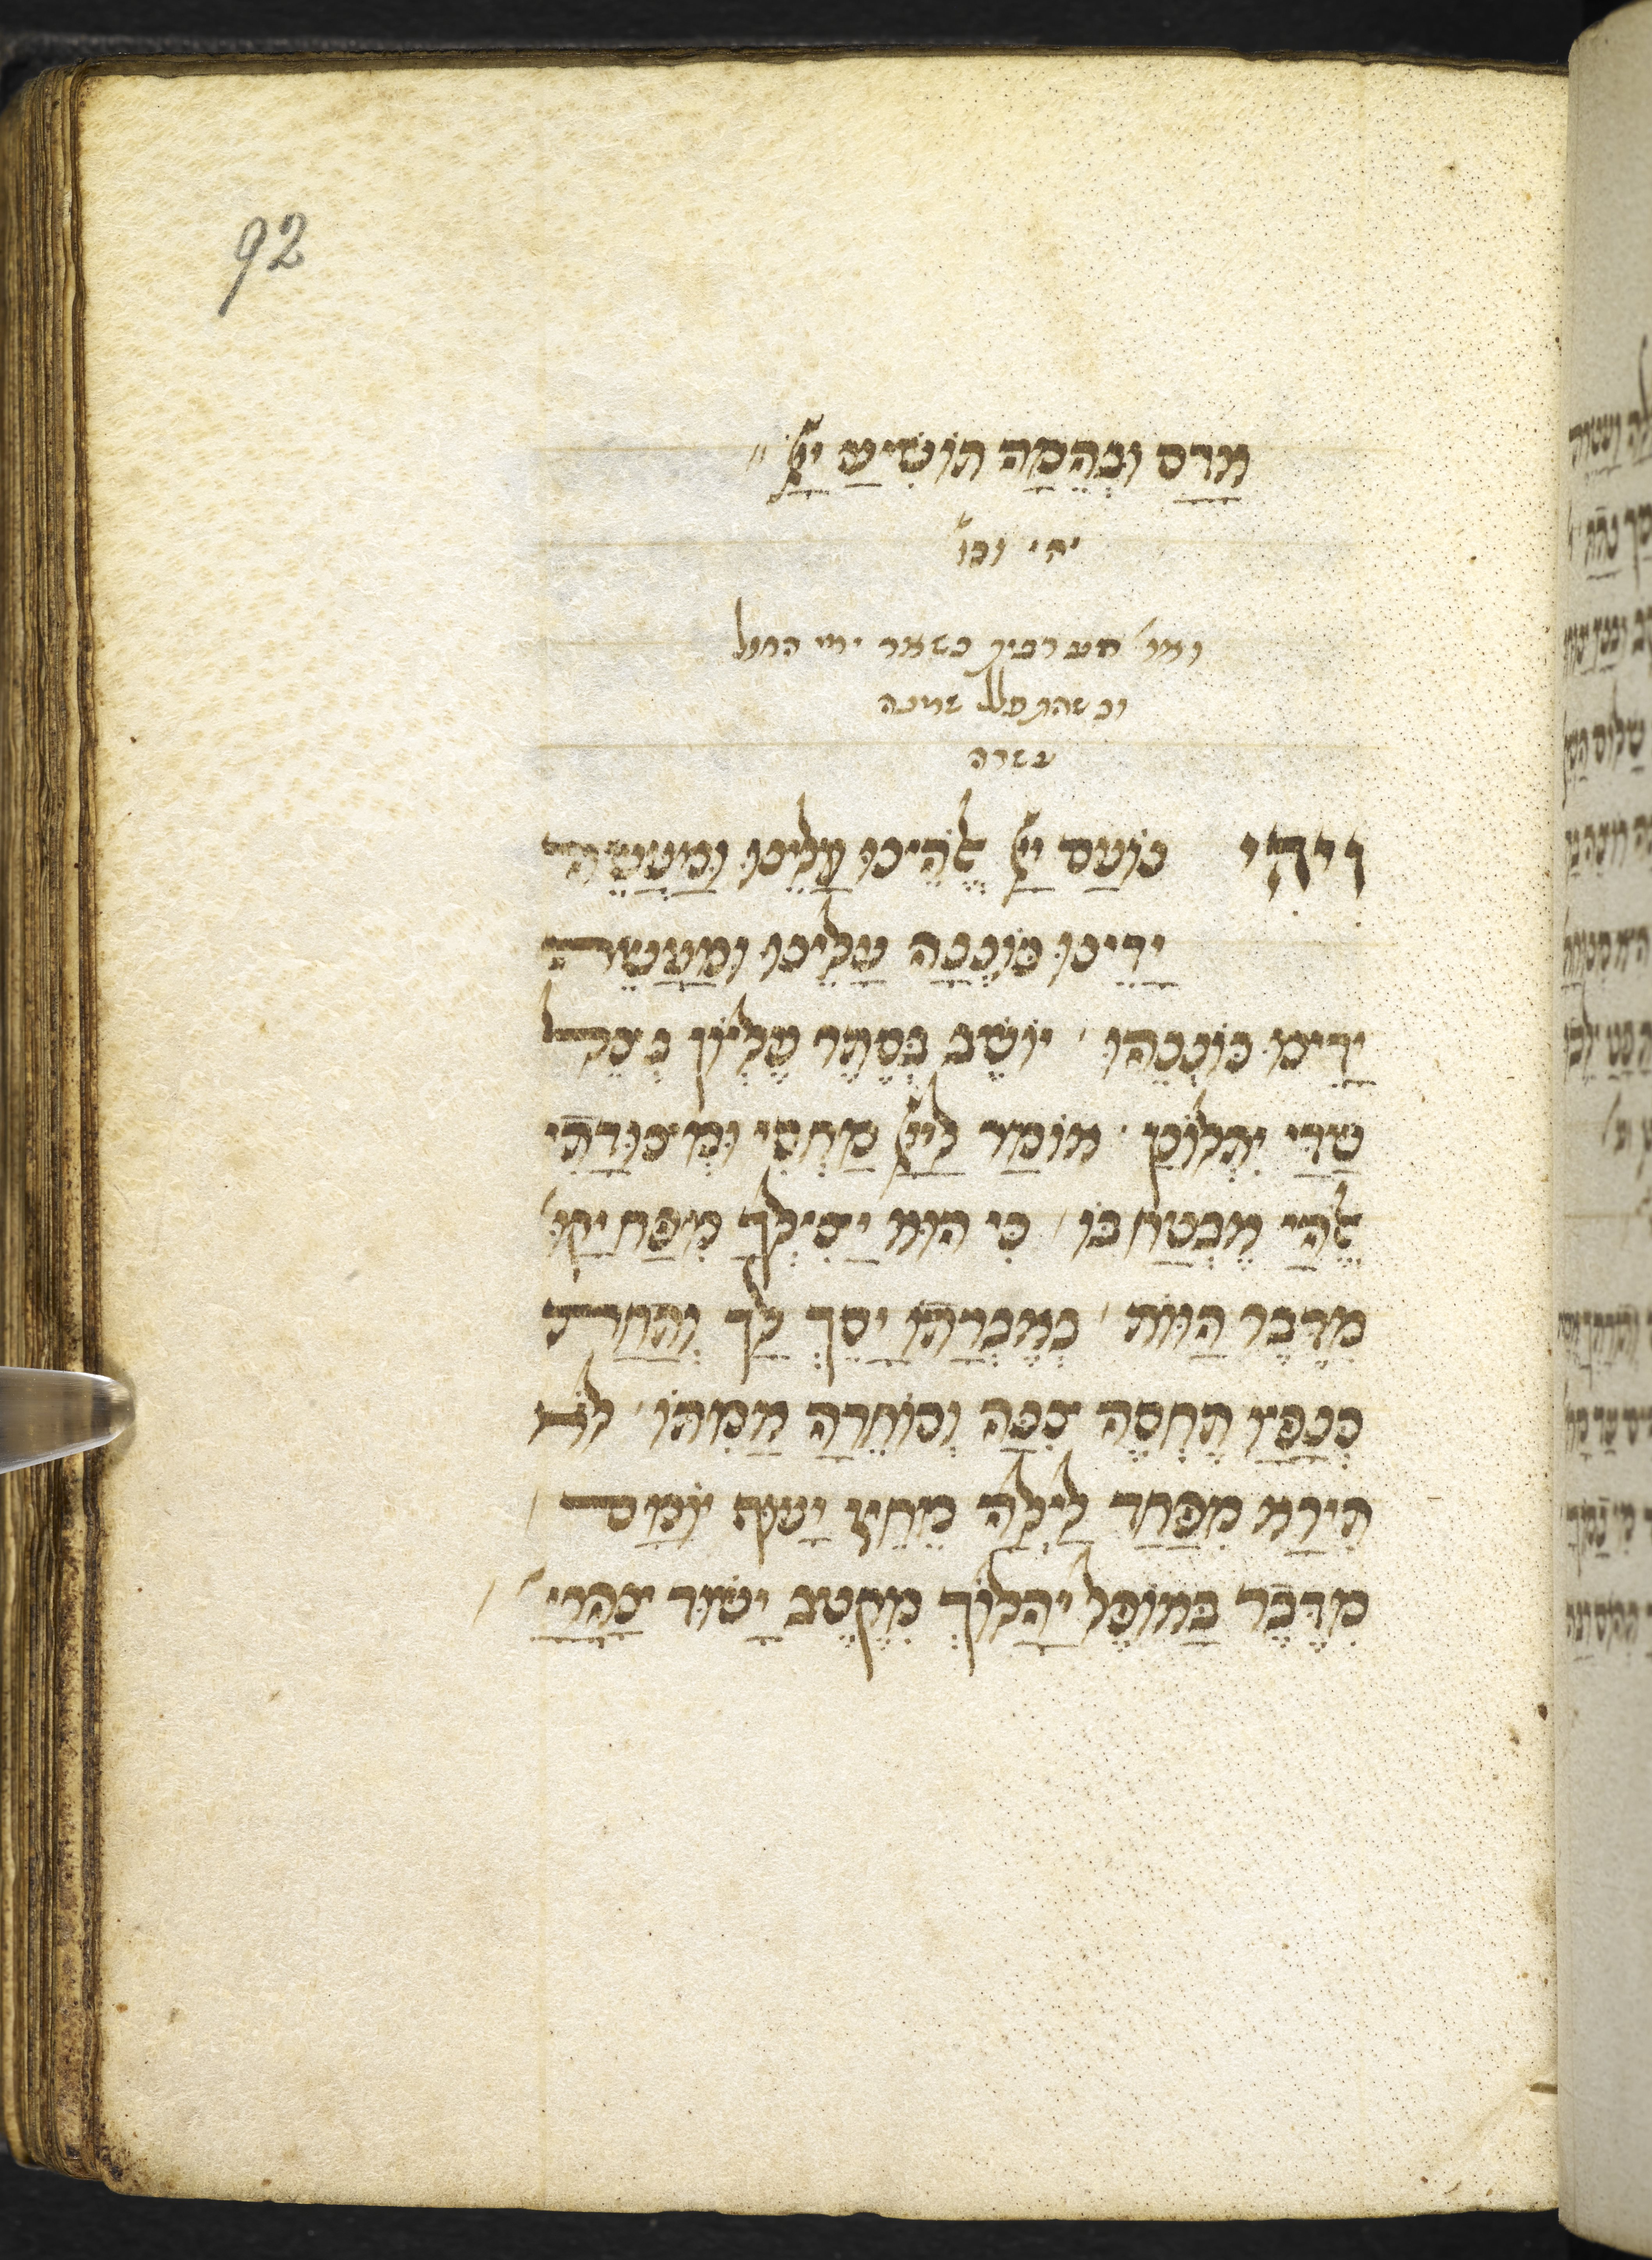 92
אָדָם וּבְהֵמָה תּוֹשִׁיעַ יְיָ׃
יהי וכו'
ואו' ערבית כשאר ימי החול
וכשהתפלל שמנה
עשרה
וִיהִי נוֹעַם יְיָ אֱלֹהֵינוּ עָלֵינוּ וּמַעֲשֵׂה
יָדֵינוּ כּוֹנְנָה עָלֵינוּ וּמַעֲשֵׂה
יָדֵינוּ כּוֹנְנֵהוּ׳ יוֹשֵׁב בְּסֵתֶר עֶלְיוֹן בְּצֵל
שַׁדַּי יִתְלוֹנָן׳ אוֹמַר לַיְיָ מַחְסִי וּמְצוּדָתִי
אֱלֹהַי אֶבְטַח בּוֹ׳ כִּי הוּא יַצִּילְךָ מִפַּח יָקוּ׳
מִדֶּבֶר הַוּוֹת׳ בְּאֶבְרָתוֹ יָסֶךְ לָךְ וְתַחַת
כְּנָפָיו תֶּחְסֶה צִנָּה וְסוֹחֵרָה אֲמִתּוֹ׳ לֹא
תִירָא מִפַּחַד לָיְלָה מֵחֵץ יָעוּף יוֹמָם׳
מִדֶּבֶר בָּאוֹפֶל יַהֲלוֹךְ מִקֶּטֶב יָשׁוּד צָהֳרָי׳